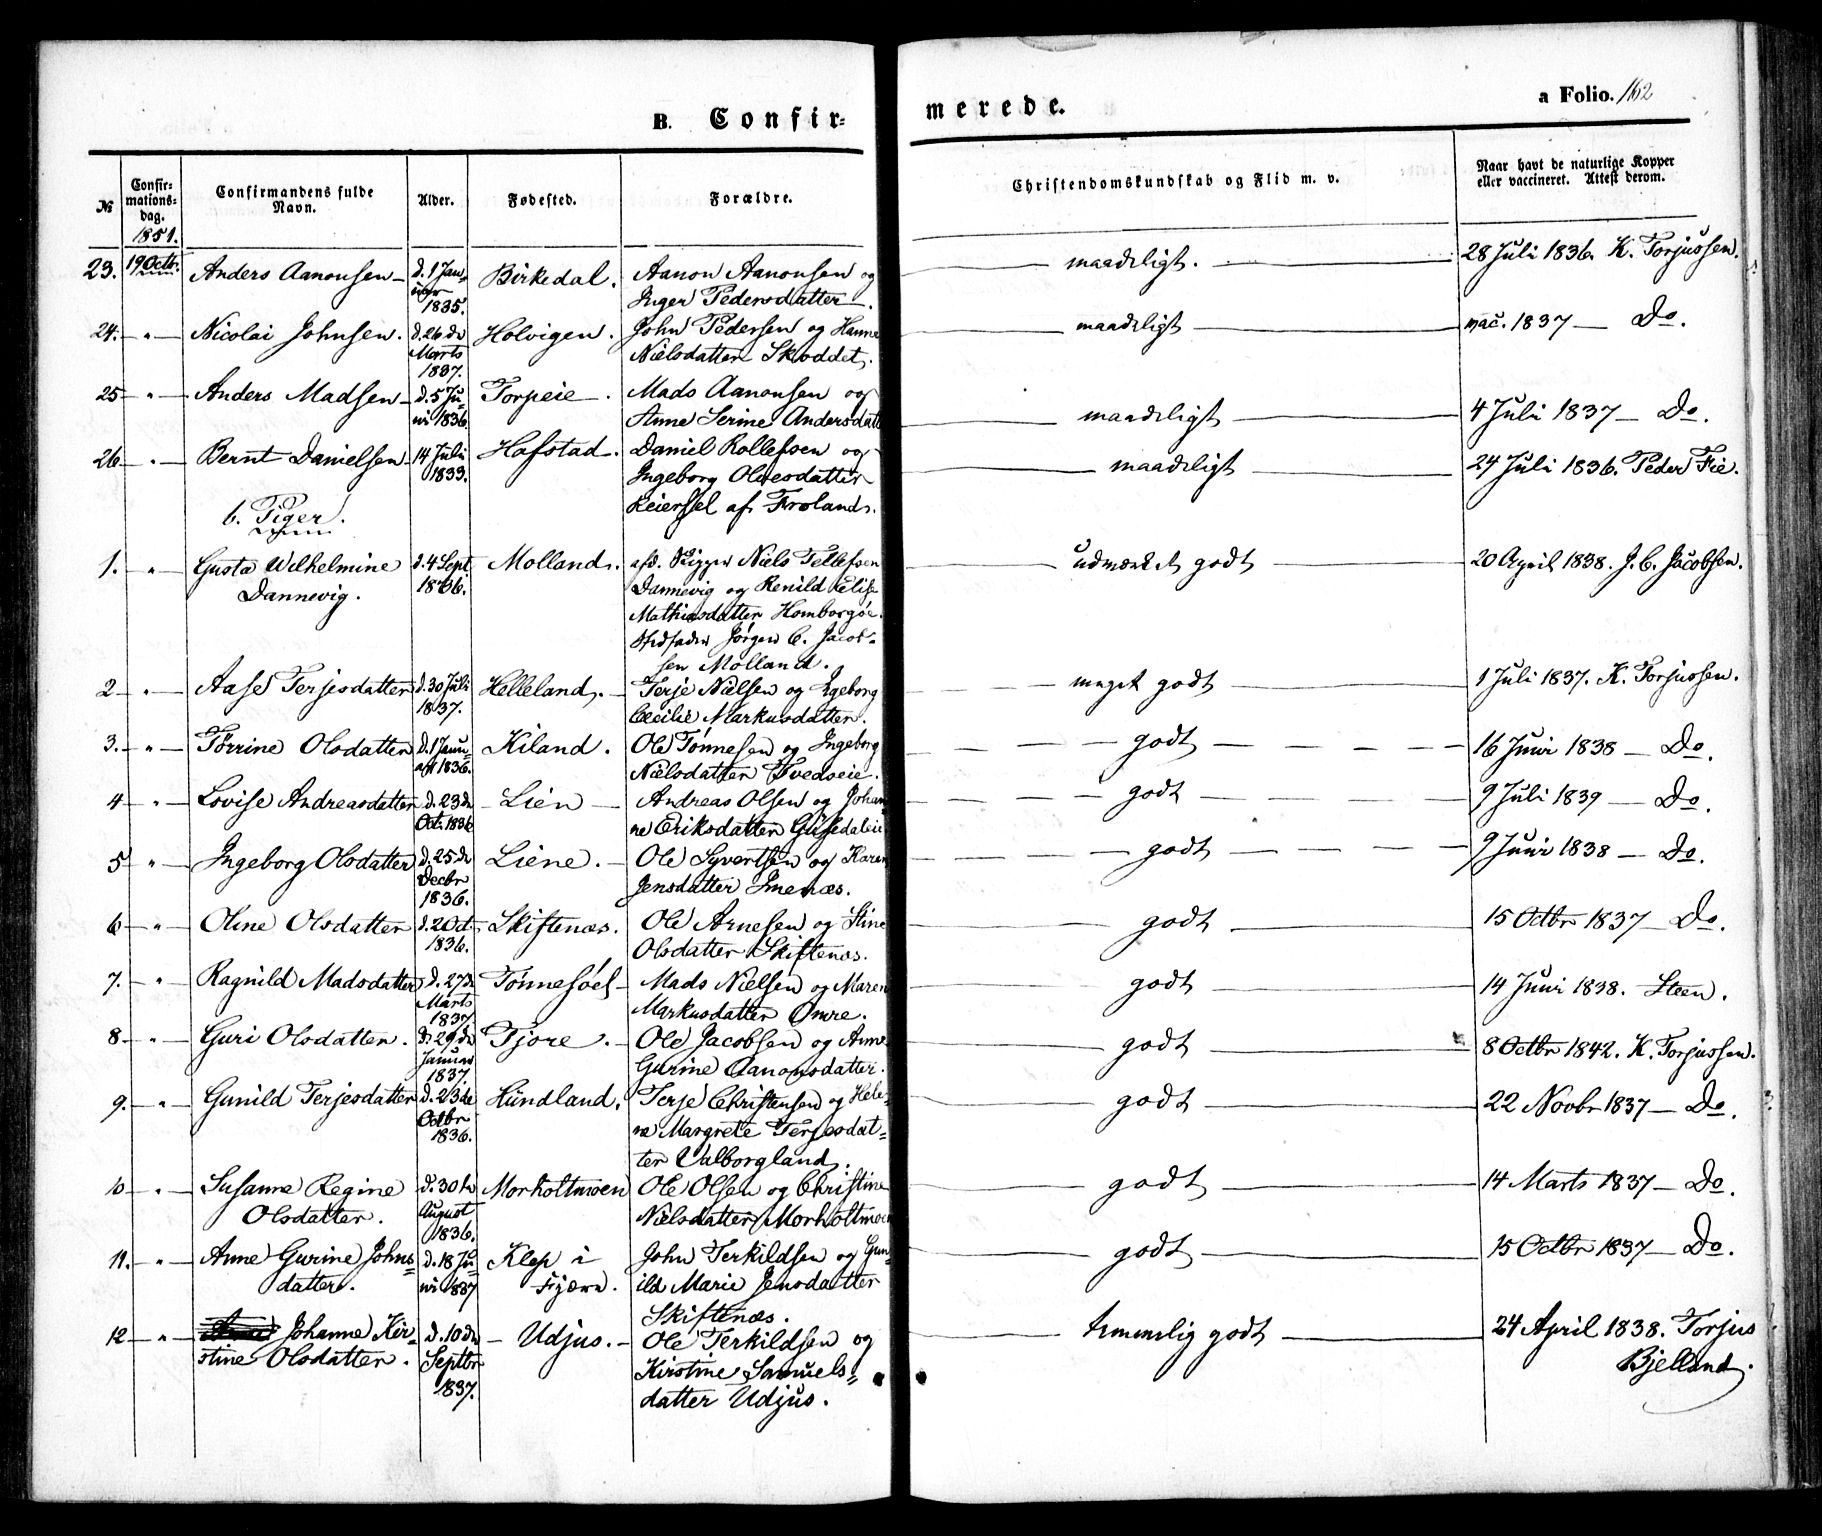 B. Confir-
merede.
a Folio. 162
№
Confir-
mations-
dag.
1851.
Confirmandens fulde
Navn.
Alder.
Fødested.
Forældre.
Christendomskundskab og Flid m. v.
Naar havt de naturlige Kopper
eller vaccineret. Attest derom.
23. 19 Octbr. Anders Aanonsen – d. 1 Jan- Birkedal. Aanon Aanonsen og maadeligt. 28 Juli 1836. K. Torjussen.
uar Inger Pedersdatter.
1835.
24. " Nicolai Johnsen. d. 26 de Holvigen. John Pedersen og Hanne maadeligt vac. 1837 – Do.
Marts Nielsdatter Skoddet.
1837.
25 " Anders Madsen – d. 5 Ju- Torpeie. Mads Aanonsen og maadeligt 4 Juli 1837 – Do.
ni 1836. Anne Serine Andersdatt
26 " Bernt Danielsen 14 Juli Hafstad. Daniel Rollefsen og maadeligt 24 Juli 1836. Peder Fie.
1833. Ingeborg Olvesdatter
Reiersel af Froland.
b. Piger.
1. " Gusta Wilhelmine d. 4 Sept Molland. afd. Skipper Niels Tellefsen udmærket godt 20 April 1838. J. C. Jacobsen.
Dannevig. 1836. Dannevig og Renild Elise
Mathiasdatter Homborgøe.
Stedfader Jørgen C. Jacob-
sen Molland.
2 " Aase Terjesdatter d. 30 Juli Helleland. Terje Nielsen og Igeborg meget godt 1 Juli 1837. K. Torjussen.
1837. Cecilie Markusdatter.
3. " Tørrine Olsdatter d. 1 Janu- Kiland. Ole Tønnesen og Ingeborg godt 16 Juni 1838 – Do.
ar 1836. Nielsdatter Tvedseie.
4 " Lovise Andreasdatter d. 23 de – Lien – Andreas Olsen og Johan- godt 9 Juli 1839 – Do.
Oct. 1836 ne Eriksdatter Gusedaleie
5 " Ingeborg Olsdatter d. 25 de Liene. Ole Syvertsen og Karen godt 9 Juni 1838 – Do.
Decbr Jensdatter Imenæs.
1836.
6 " Oline Olsdatter d. 20 d. Skiftenæs. Ole Arnesen og Stine godt 15 Octbr 1837 – Do.
1836. Olsdatter Skiftenæs.
7. " Ragnild Madsdatter d. 27 de Tønnesøel – Mads Nielsen og Maren godt 14 Juni 1838. Steen.
Marts Markusdatter Omre.
1837
8 " Guri Olsdatter. d. 29 de Tjore. Ole Jacobsen og Anne godt 8 Octbr 1842. K. Torjussen.
Januar Gurine Aanonsdatter.
1837
9. " Gunild Terjesdatter d. 23 de Hundland. Terje Christensen og Hele- godt 22 Novbr 1837 – Do.
Octbr ne Margrete Terjesdat-
1836. ter Valborgland.
10 " Susanne Regine d. 30 te Morholtmoen Ole Olsen og Christine godt 14 Marts 1837 – Do.
Olsdatter. August Nielsdatter Morholtmoen
1836.
11. " Anne Gurine Johns- d. 18 Ju- Klep i John Terkildsen og Gun- godt 15 Octbr 1837 – Do.
datter. ni 1837 Fjære. ild Marie Jensdatter
Skiftenæs.
12 " Johanne Kir- d. 10 de – Udjus. – Ole Terkildsen og temmelig godt 24 April 1838. Torjus
stine Olsdatter. Septbr Kirstine Samuels- Bjelland.
1837. datter Udjus.